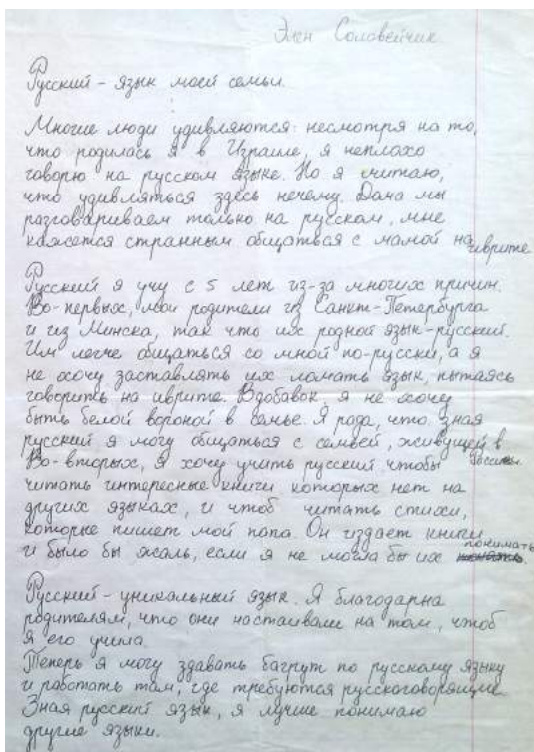 Элен Соловейчик
Русский - язык моей семьи.
Многие люди удивляются: несмотря на то,
что родилась я в Израиле, я неплохо
говорю на русском языке. Но я считаю,
что удивляться здесь нечему. Дома мы
разговариваем только на русском, мне
кажется странным общаться с мамой на иврите
Русский я учу с 5 лет из-за многих причин.
Во-первых, мои родители из Санкт-Петербурга
и из Минска, так что их родной язык - русский.
Им легче общаться со мной по-русски, а я
не хочу заставлять их ломать язык, пытаясь
говорить на иврите. Вдобавок, я не хочу
быть белой вороной в семье. Я рада, что зная
русский я могу общаться с семьей, живущей в России.
Во-вторых, я хочу учить русский чтобы
читать интересные книги которых нет на
других языках, и чтоб читать стихи,
которые пишет мой папа. Он издает книги
и было бы жаль, если я не могла бы их понимать
Русский - уникальный язык. Я благодарна
родителям, что они настаивали на том, чтоб
я его учила.
Теперь я могу здавать багрут по русскому языку
и работать там, где требуются русскоговорящие.
Зная русский язык, я лучше понимаю
другие языки.